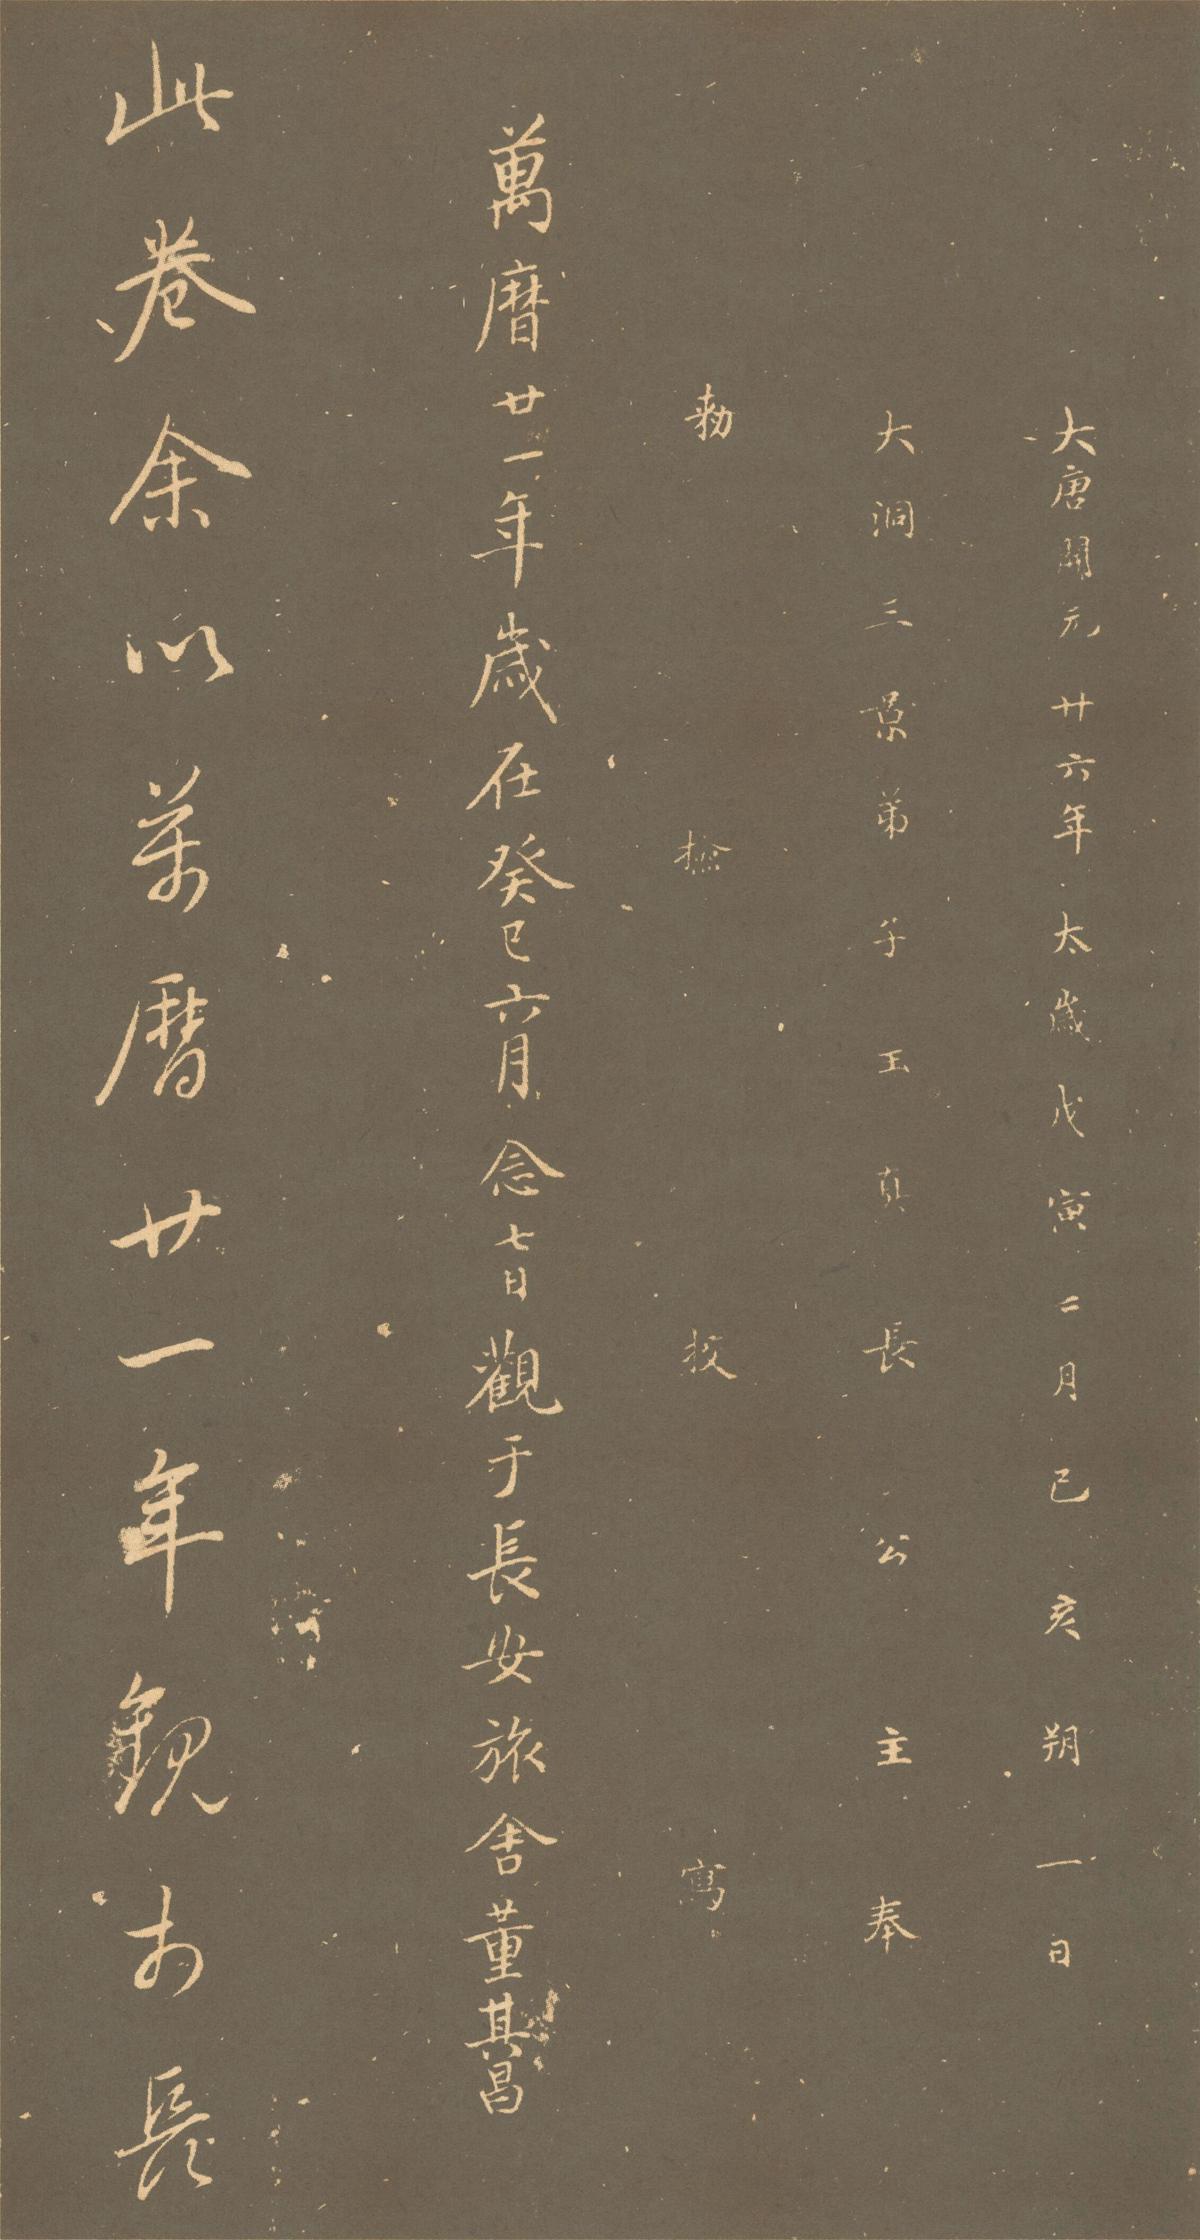 大唐開元廿六年太歲戊寅二月己亥朔一日
大洞三景弟子玉真長公主奉
勑檢校寫
萬曆廿一年歲在癸巳六月念七日觀于長安旅舍董其昌
此卷余以萬曆廿一年觀於長